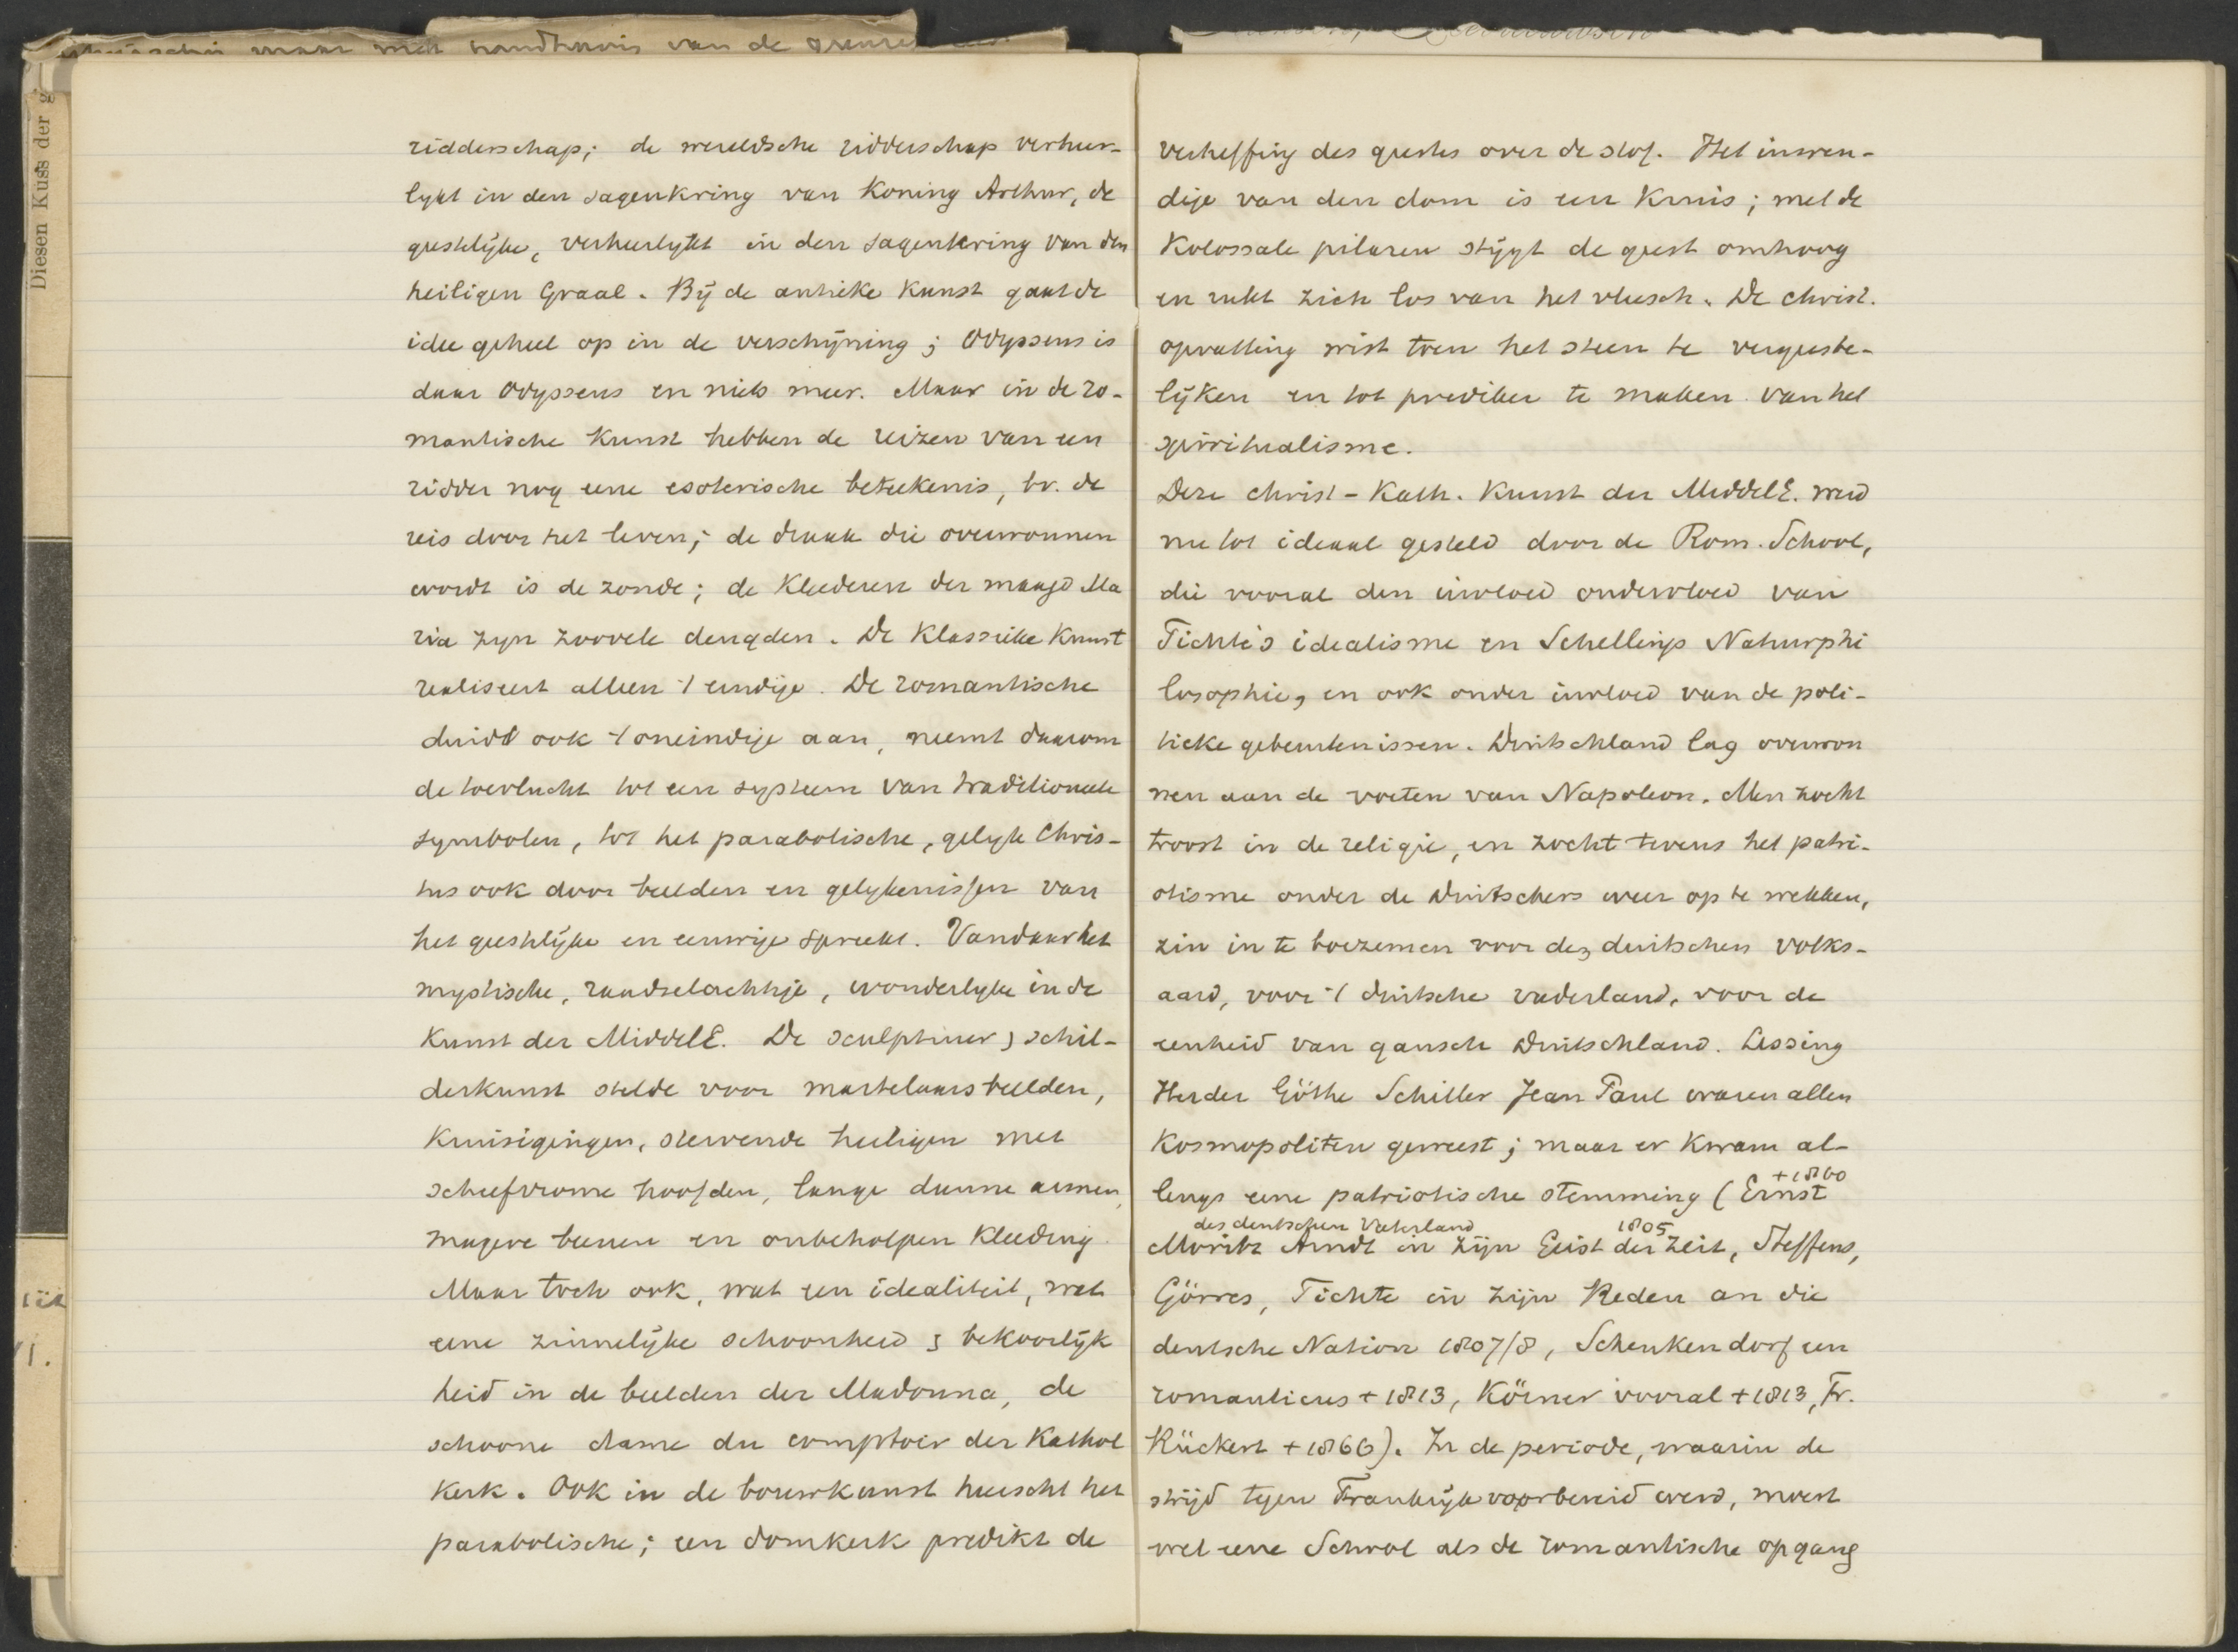 ridderschap; de wereldsche ridderschap verheer-
lykt in den sagenkring van Koning Arthur, de
geestelijke, verheerlykt in den sagenkring van den
heiligen Graal. Bij de antieke Kunst gaat de
idee geheel op in de verschijning; Odysseus is
daar Odysseus en niets meer. Maar in de ro-
mantische Kunst hebben de reizen van een
ridder nog eene esoterische beteekenis, bv. de
reis door het leven; de draak die overwonnen
wordt is de zonde; de Kleederen der maagd Ma
ria zyn zoovele deugden. De Klassieke Kunst
realiseert alleen 't eindige. De romantische
duidt ook 't oneindige aan, neemt daarom
de toevlucht tot een systeem van traditioneele
symbolen, tot het parabolische, gelyk Chris-
tus ook door beelden en gelykenissen van
het geestelijke en eeuwige spreekt. Vandaar het
mystische, raadselachtige, wonderlyke in de
Kunst der MiddelE. De sculptuur & schil-
derkunst stelde voor martelaarsbeelden,
Kruisigingen, stervende heiligen met
scheefvrome hoofden, lange dunne armen,
magere beenen en onbeholpen Kleeding.
Maar toch ook, wat een idealiteit, wat
eene zinnelijke schoonheid & bekoorlijk
heid in de beelden der Madonna, de
schoone dame du comptoir der Kathol
Kerk. Ook in de bouwkunst heerscht het
parabolische; een domkerk predikt de
Diesen Kuss der
verheffing des geestes over de stof. Het inwen-
dige van den dom is een Kruis; met de
Kolossale pilaren stijgt de geest omhoog
en rukt zich los van het vleesch. De christ.
opvatting wist toen het steen te vergeeste-
lijken en tot prediker te maken van het
spiritualisme.
Deze christ-Kath. Kunst der MiddelE. werd
nu tot ideaal gesteld door de Rom. School,
die vooral den invloed ondervloed van
Fichte's idealisme en Schellings Naturphi
losophie, en ook onder invloed van de poli-
tieke gebeurtenissen. Duitschland lag overwon
nen aan de voeten van Napoleon. Men zocht
troost in de religie, en zocht tevens het patri-
otisme onder de Duitschers weer op te wekken,
zin in te boezemen voor den duitschen volks-
aard, voor 't duitsche vaderland, voor de
eenheid van gansch Duitschland. Lessing
Herder Göthe Schiller Jean Paul waren allen
Kosmopoliten geweest; maar er Kwam al-
lengs eene patriotische stemming (Ernst +1860
des deutschen Vaterland 1805
Moritz Arndt in zijn Geist der Zeit, Steffens,
Görres, Fichte in zijn Reden an die
deutsche Nation 1807/8, Schenkendorf een
romanticus + 1813, Körner vooral + 1813, Fr.
Rückert + 1866). In de periode, waarin de
strijd tegen Frankrijk voorbereid werd, moest
wel eene School als de romantische opgang